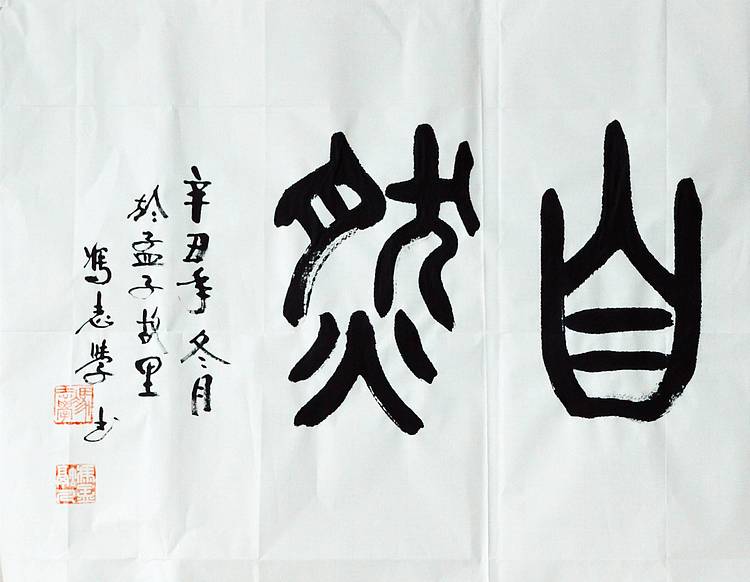 自然
辛丑年冬月
於孟子故里
馮志學书